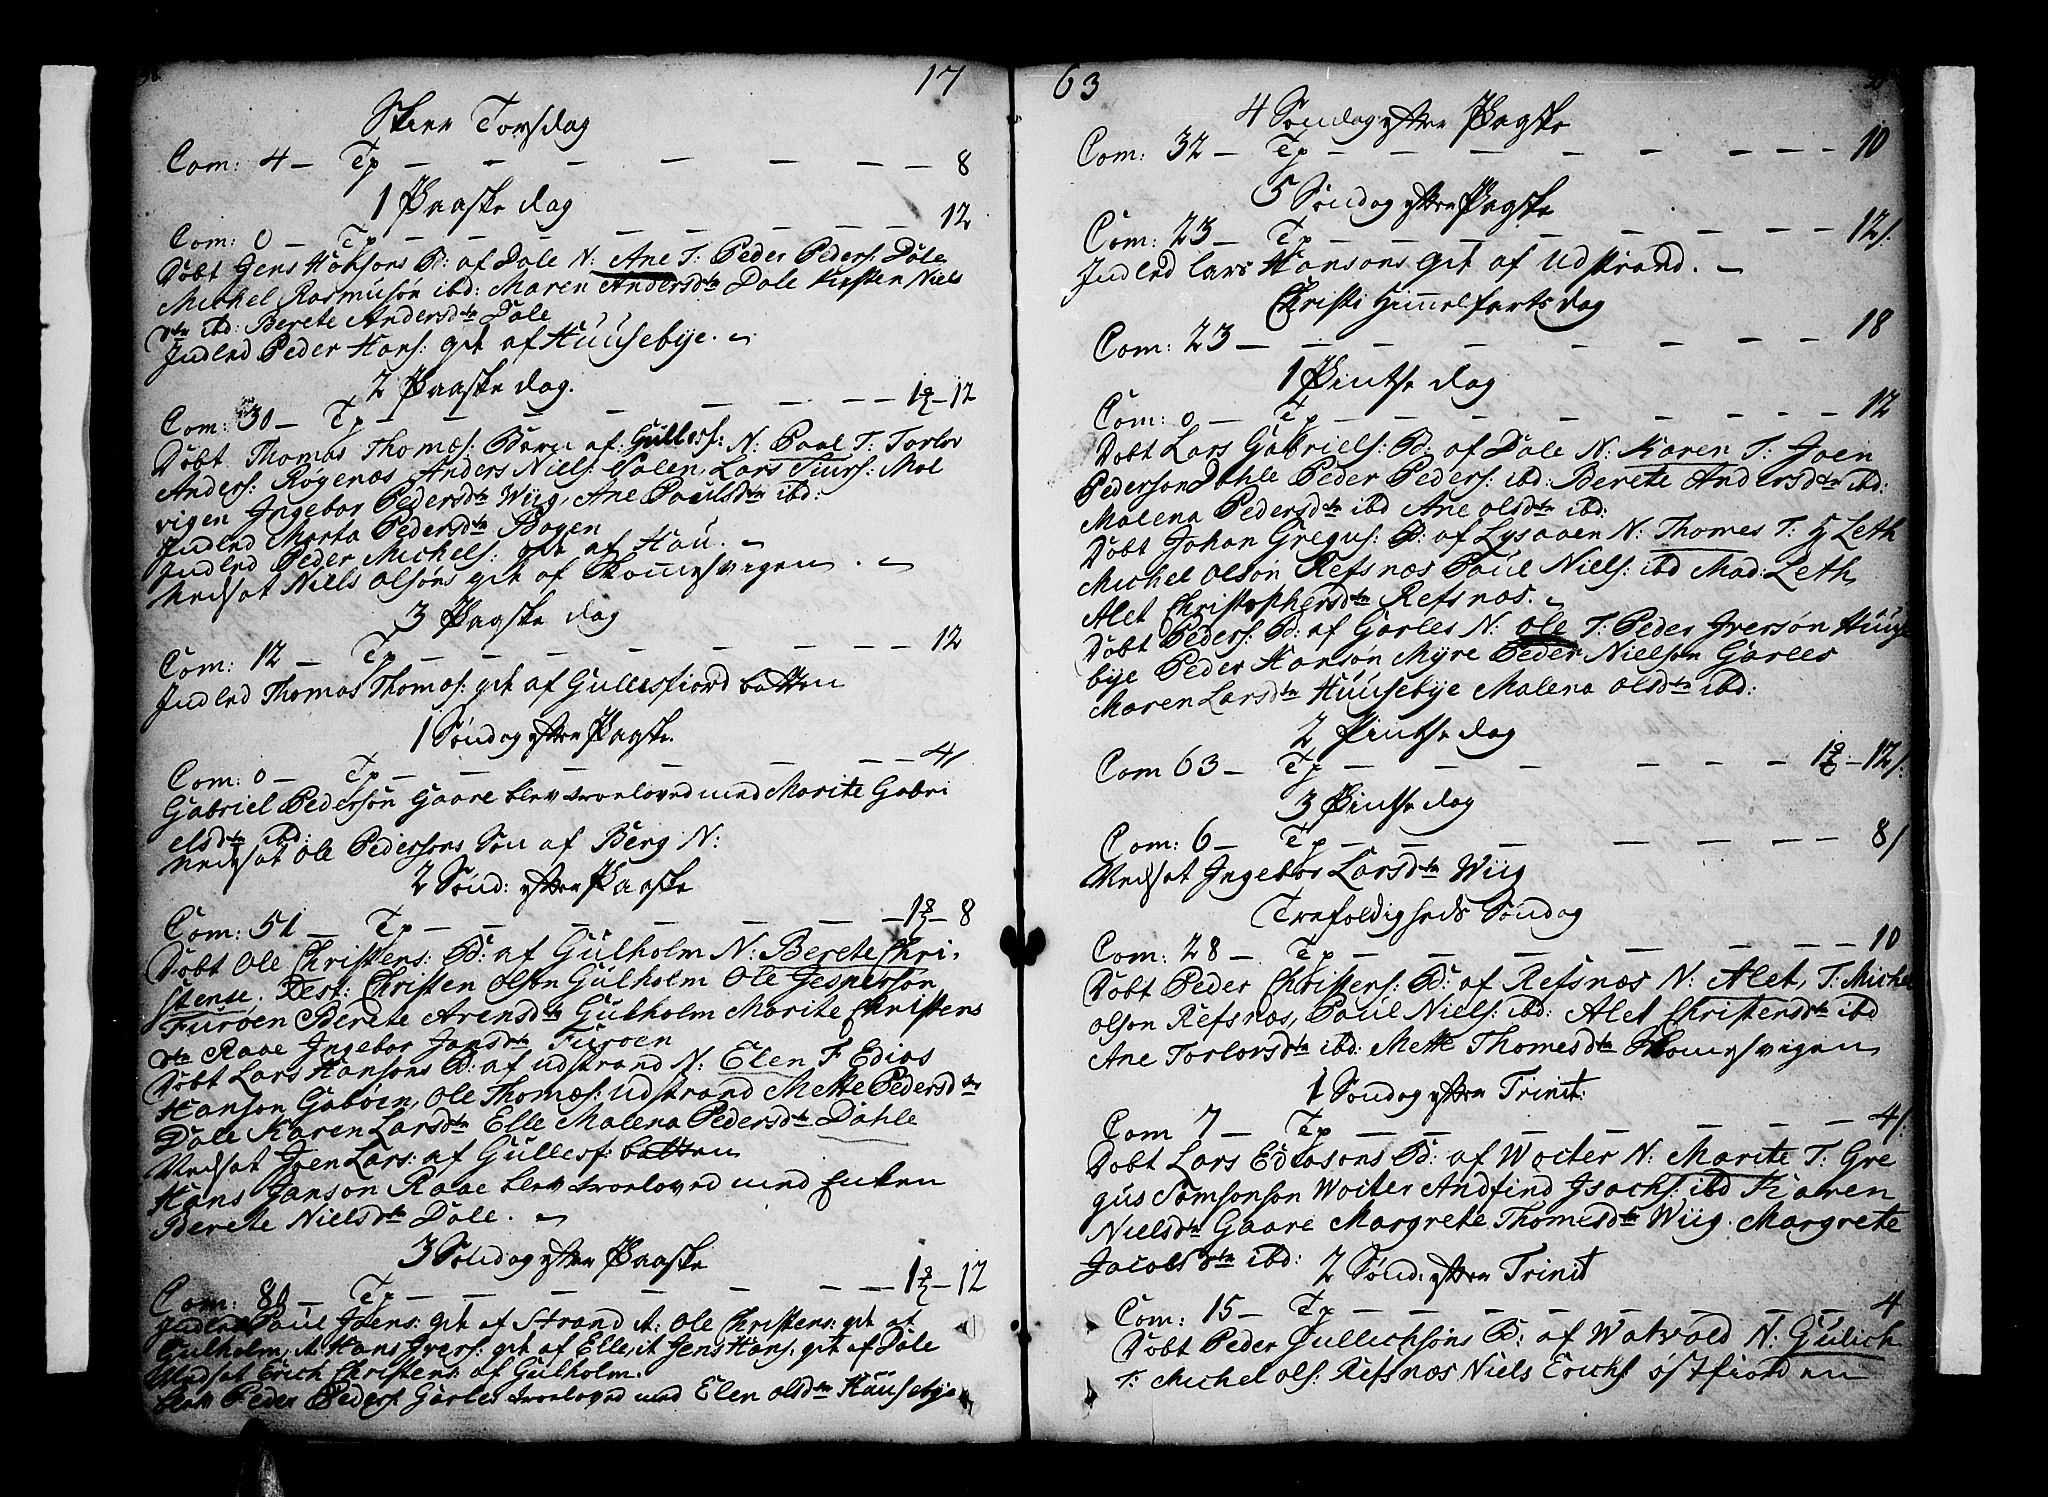 17
Skier Torsdag
Com: 4 — Tp — — — — — — 8
1 Paaske dag
Com: 0 — Tp — — — — — — 12
Døbt Jens Hansøns B: af Dale N: Ane T: Peder Peders: Dale
Michel Rasmusøn ibd: Maren Andersdtr Dale Kirsten Niels
dtr ibd: Berete Andersdtr Dale
Indled Peder Hans: qvt af Huusebije.
2 Paaske dag.
Com: 30 — Tp — — — — — — 12
Døbt Thomas Thomæs: Barn af Gullesf: N: Paal T: Torlov
Anders: Røgenæs Anders Niels: Salen, Lars Siurs: Mel
vigen Ingebor Pedersdtr Wiig, Ane Paulsdtr ibd:
Indled Marta Pedersdtr Bogen
Indled Peder Michels: qvt af Hau.
Vedsat Niels Olsøns qvt af Kiomesvigen.
3 Paaske dag
Com: 12 — Tp — — — — — — 12
Indled Thomas Thomæs: qvt af Gullesfiord batten
1 Søndag efter Paaske.
Com: 0 — Tp — — — — — — 4/
Gabriel Pedersøn Gaare blev troeloved med Marite Gabri
elsdtr ibd:
Vedsat Ole Pedersøns Søn af Berg N:
2 Sønd: efter Paaske
Com: 51 — Tp — — — — — — 8
Døbt Ole Christens: B: af Gulholm N: Berete Chri-
stense. Test: Christen Olson Gulholm Ole Jespersøn
Furøen Berete Arensdtr Gulholm Marite Christens
dtr Raae Ingebor Jansdtr Furøen
Døbt Lars Hansøns B: af Udstrand N: Elen T Edias
Hansøn Gabøen, Ole Thomæs: Udstrand Mette Pedersdtr
Dale Karen Larsdtr Elle Malena Pedersdtr Dahle
Vedsat Joen Lars: af Gullesf: batten
Hans Janson Raae blev troeloved med Enken
Berete Nielsdtr Dale.
3 Søndag efter Paaske
Com: 80 — Tp — — — — — — 12
Indled Paul Joens: qvt af Strand it: Ole Christens: qvt af
Gulholm, it Hans Ivers: qvt af Elle, it Jens Hans: qvt af Dale
Vedsat Erich Christens: af Gulholm.
blev Peder Peders: Garles troeloved med Elen Olsdtr Huusebije
63
4 Søndag efter Paaske
Com: 32 — Tp — — — — — — 10
5 Søndag efter Paaske
Com: 23 — Tp — — — — — — 12/:
Indled Lars Hansøns qvt af Udstrand.
Christi Himmelfarts dag
Com: 23 — — — — — — 18
1 Pintse dag
Com: 0 — Tp — — — — — — 12
Døbt Lars Gabriels: B: af Dale N: Karen T: Joen
Pederson Dahle Peder Peders: ibd: Berete Andersdtr ibd:
Malena Pedersdtr ibd Ane Olsdtr ibd:
Døbt Johan Gregus: B: af Lysaaen N: Thomes T: H Leth
Michel Olsøn Refsnæs Paul Niels: ibd Mad: Leth,
Alet Christophersdtr Refsnæs.
Døbt Peders: B: af Garles N: Ole T: Peder Iversøn Huuse
bije Peder Hansøn Myre Peder Nielson Garles
Maren Larsdtr Huusebije Malena Olsdtr ibd:
2 Pintse dag
Com 63 — Tp — — — — — — 12/:
3 Pintse dag
Com: 6 — Tp — — — — — — 8/
Vedsat Ingebor Larsdtr Wiig
Trefoldigheds Søndag
Com: 28 — Tp — — — — — — 10
Døbt Peder Christens: B: af Refsnæs N: Alet, T: Michel
Olson Refsnæs, Paul Niels: ibd: Alet Christensdtr ibd
Ane Torlorsdtr ibd: Mette Thomesdtr Kiomesvigen
1 Søndag efter Trinit:
Com 7 — Tp — — — — — — 4/:
Døbt Lars Ediasons B: af Wolter N: Marite T: Gre
gus Samsonson Wolter Andfind Isachs: ibd Karen
Nielsdtr Gaare Margrete Thomesdtr Wiig. Margrete
Jacobsdtr ibd:
2 Sønd: efter Trinit
Com: 15 — Tp — — — — — — 4
Døbt Peder Gullichsøns B: af Watvold N: Gulich
T: Michel Ols: Refsnæs Niels Erichs Østfiorden